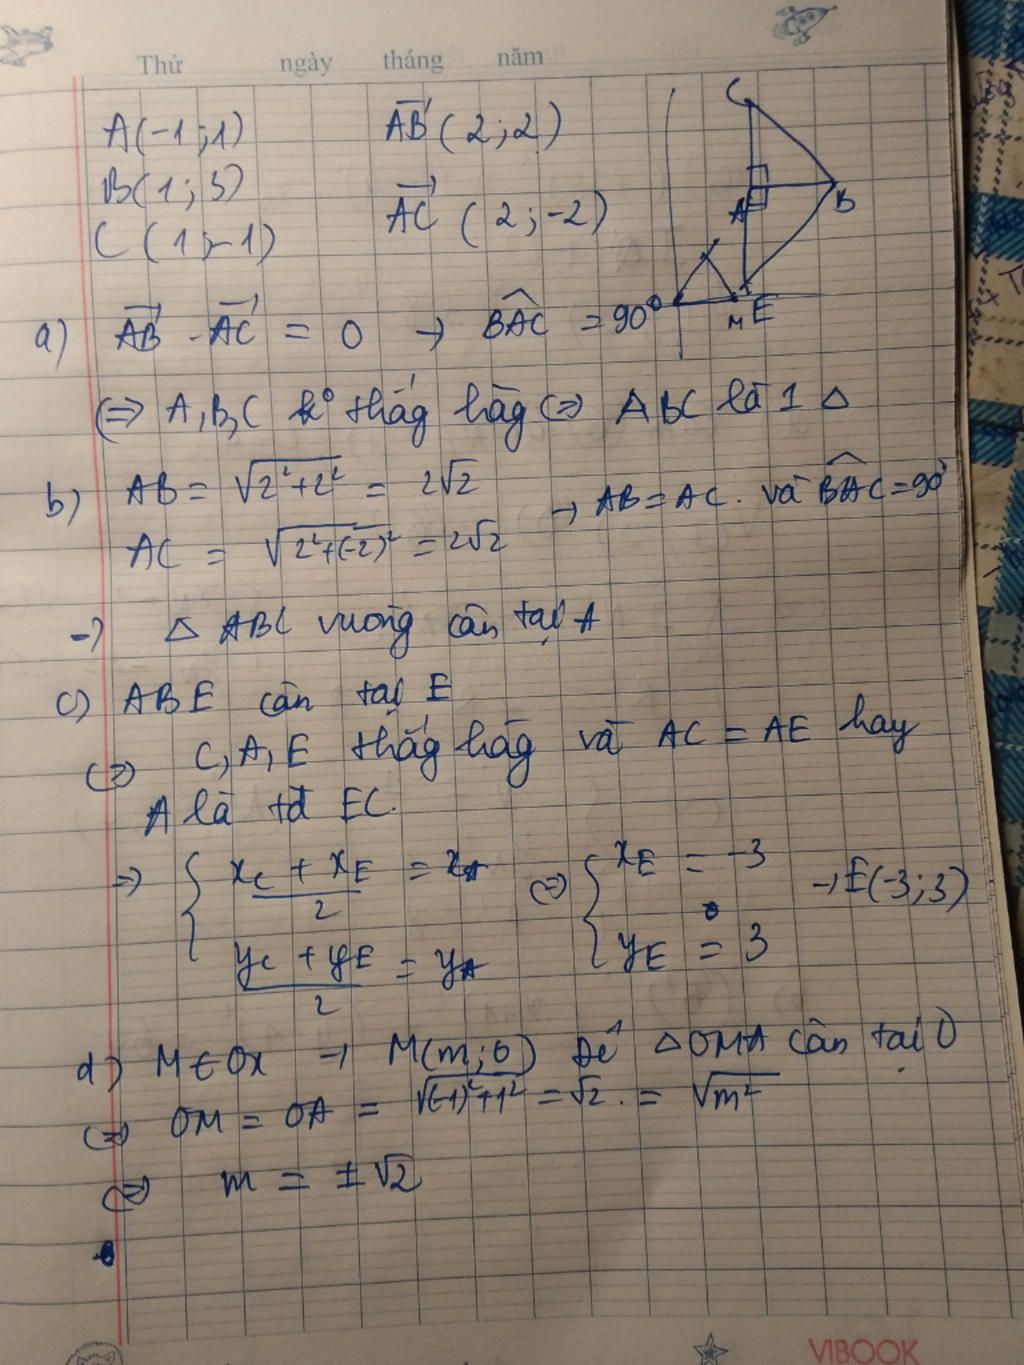 Thứ ngày tháng năm
A(-1;1) \overrightarrow{AB} (2;2)
B(1;3)
C (1;-1) \overrightarrow{AC} (2;-2)
C
A B
M E
a) \overrightarrow{AB} . \overrightarrow{AC} = 0 → \widehat{BAC} = 90°
(=> A,B,C k° thẳg hàg <=> ABC là 1 △
b) AB = √(2²+2²) = 2√2 → AB = AC. và \widehat{BAC} = 90°
AC = √(2²+(-2)²) = 2√2
→ △ ABC vuông cân tại A
c) ABE cân tại E
<=> C,A,E thẳg hàg và AC = AE hay
A là tđ EC.
=> { (x_C + x_E)/2 = x_A <=> { x_E = -3 → E(-3;3)
(y_C + y_E)/2 = y_A y_E = 3
d) M ∈ Ox → M(m;0) Để △OMA cân tại O
<=> OM = OA = √((-1)²+1²) = √2. = √m²
<=> m = ±√2
VIBOOK